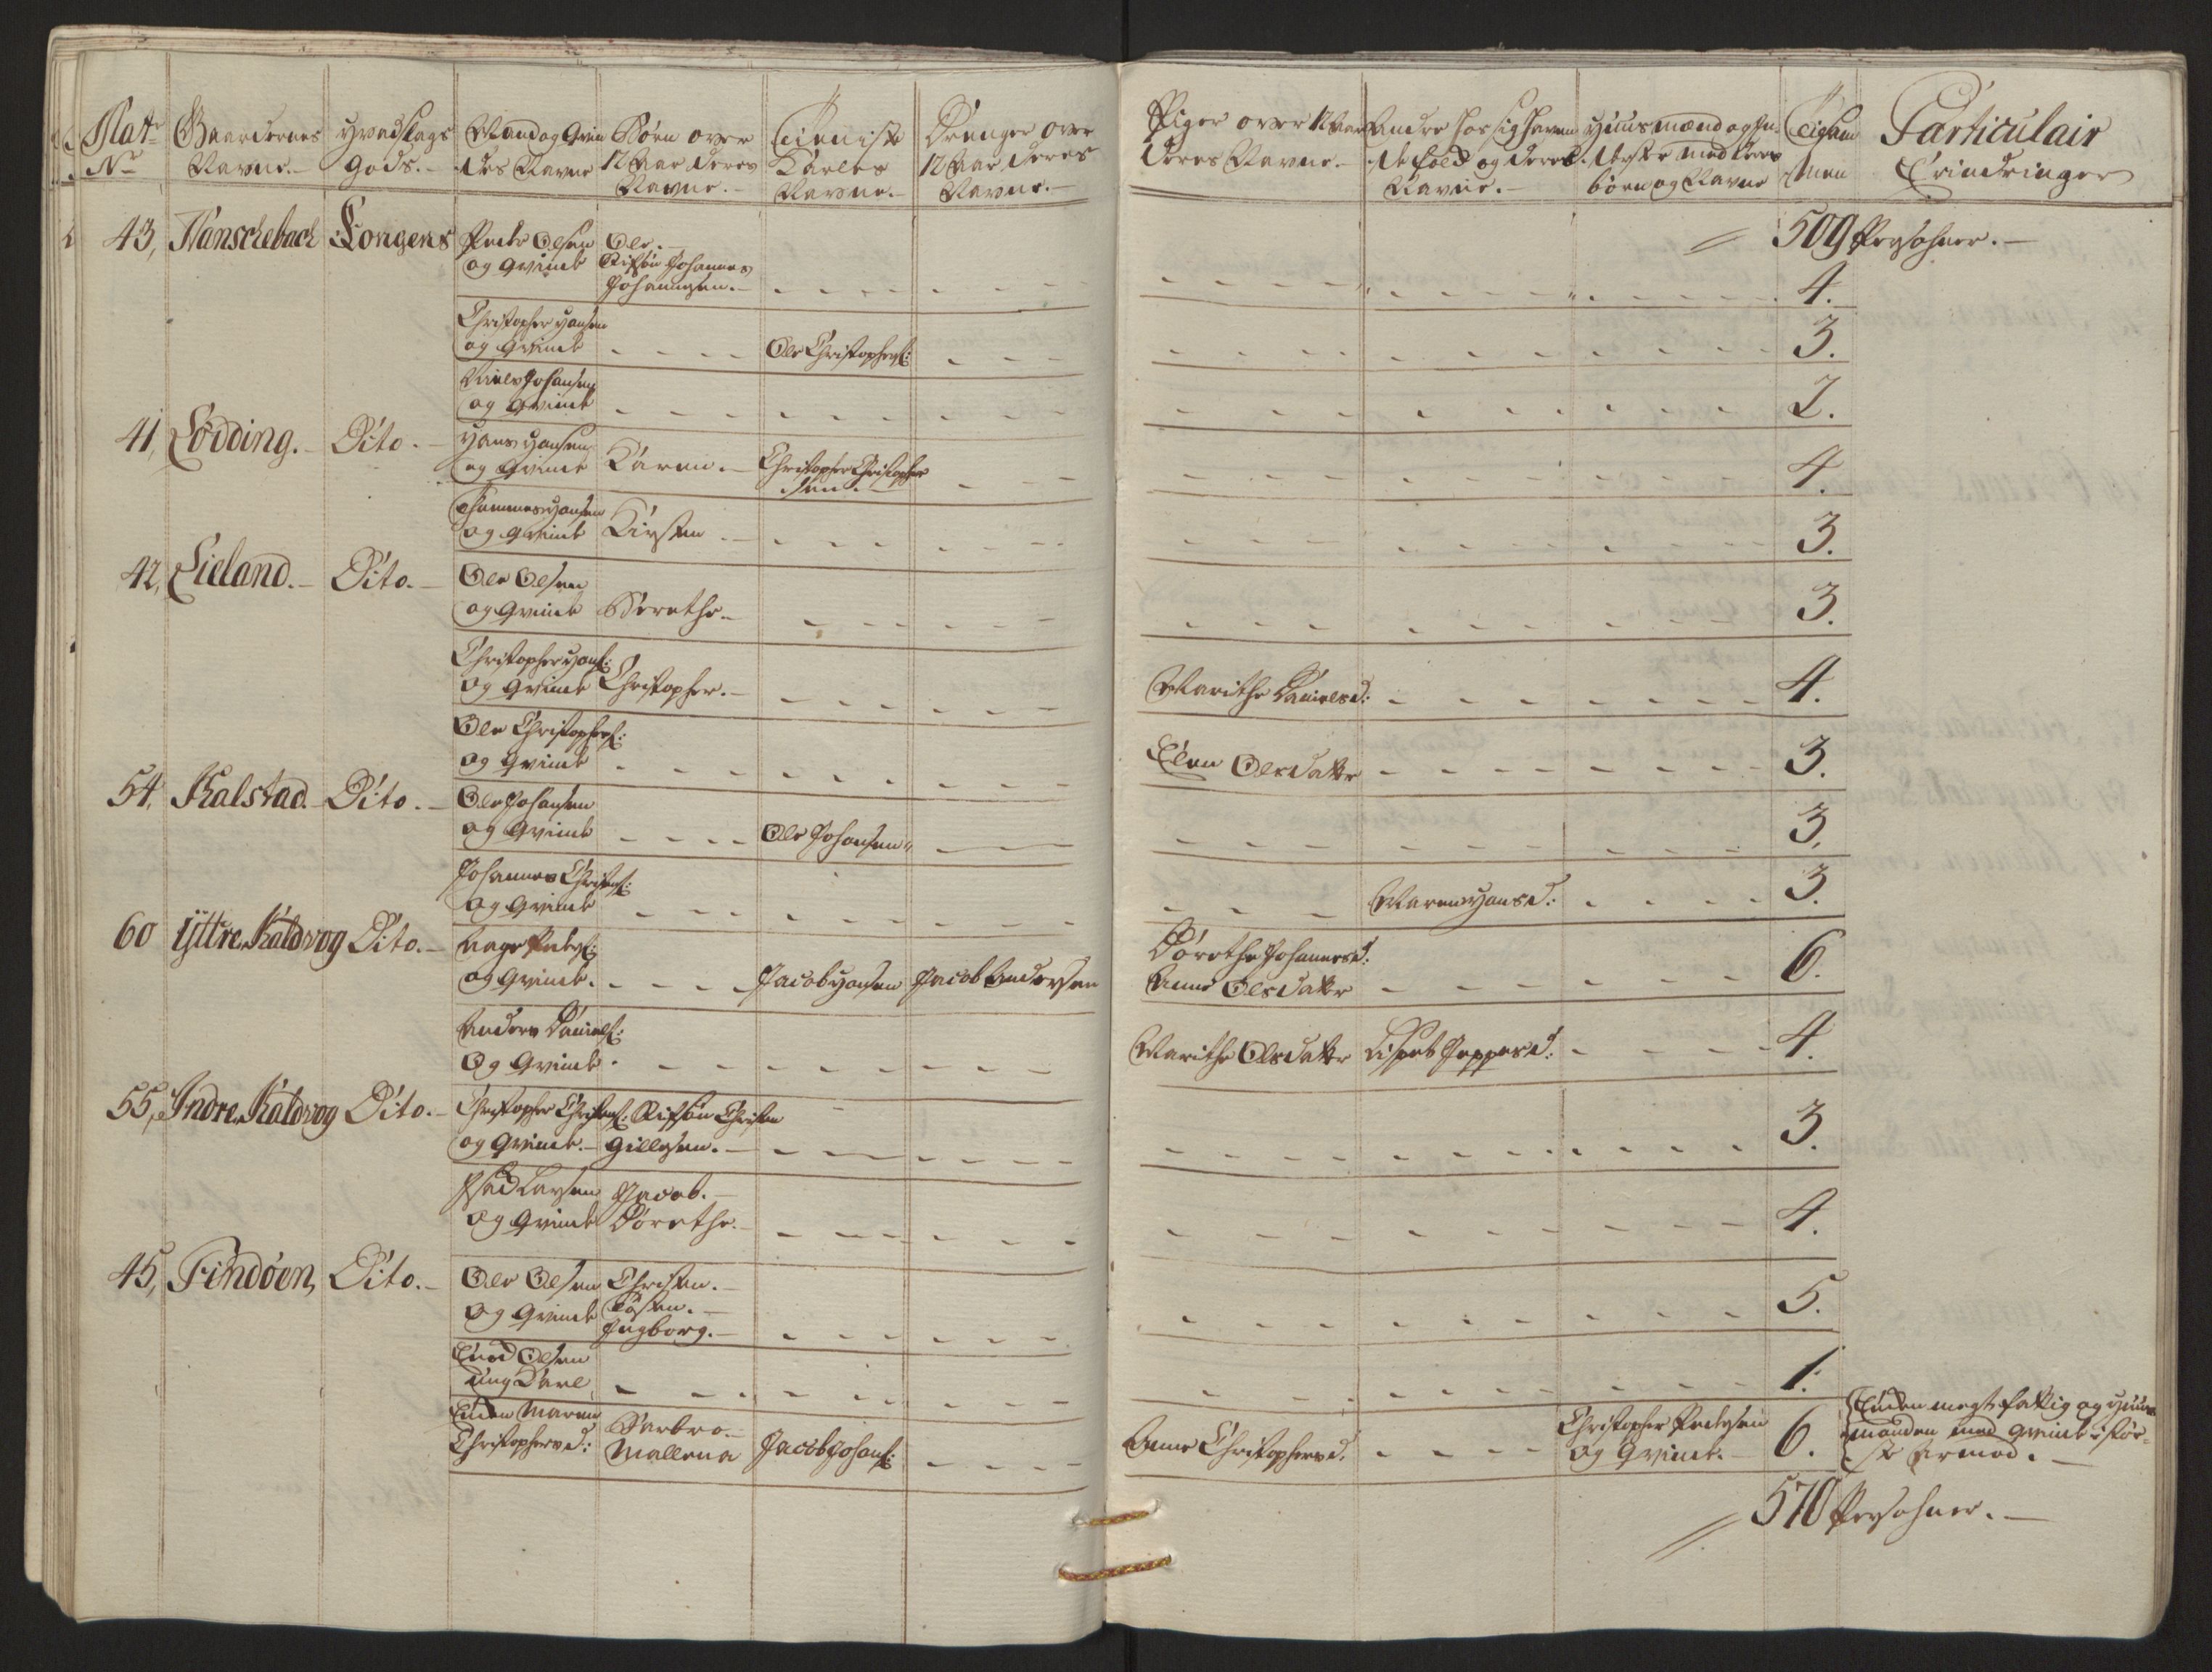 Matr Nr
Gaardernes Navne.
Hvadslags Gods.
Mand og Qvindes Navne
Børn over 12 Aar deres Navne.
Tieniste Karles Navne.
Drenger over 12 Aar deres Navne.
Piger over 12 Aar deres Navne.
Andre hos sig haven de fold og deres Navne.
Huusmænd og In derste med deres børn og Navne
Tilsam men
Particulair Erindringer
509 Persohner.
43, Nanschebach Longens Peder Olsen og Qvinde Ole. Stifsøn Johannes Johannsen. 4.
Christopher Hansen og Qvinde Ole Christophers: 3.
Niels Johansen og Qvinde 2.
41, Lødding. Dito. Hans Hansen og Qvinde Karen. Christopher Christopher sen. 4.
Thommes Hansen og Qvinde Kirsten 3.
42, Lieland. Dito. Ole Olsen og Qvinde Berethe 3.
Christopher Hans: og Qvinde Christopher. Marithe Danielsd: 4.
Ole Christophers: og Qvinde Elen Olsdatter 3.
54, Kalstad. Dito. Ole Johansen og Qvinde Ole Johansen 3.
Johannes Christens: og Qvinde Maren Hansd: 3.
60 Ÿttre Kaldvog Dito. Aage Peders: og Qvinde. Jacob Hansen Jacob Andersen Dorethe Johannesd: Anne Olsdatter 6.
Anders Daniels: og Qvinde. Marithe Olsdatter Lisbet Jeppesd: 4.
55, Indre Kaldvog Dito. Christopher Christens: og Qvinde. Stifsøn Christen Gillesen. 3.
Larsen og Qvinde Jacob. Dorethe. 4.
45, Findøen, Dito. Ole Olsen og Qvinde Christen. Ingborg. 5.
Knud Olsen ung Karl 1.
Enken Maren Christophersd: Barbro. Mallena Jacob Johans: Anne Christophersd. Christopher Pedersen og Qvinde. 6. Enken megt fattig og Huus manden med Qvinde i stør ste Armod.
570 Persohner.